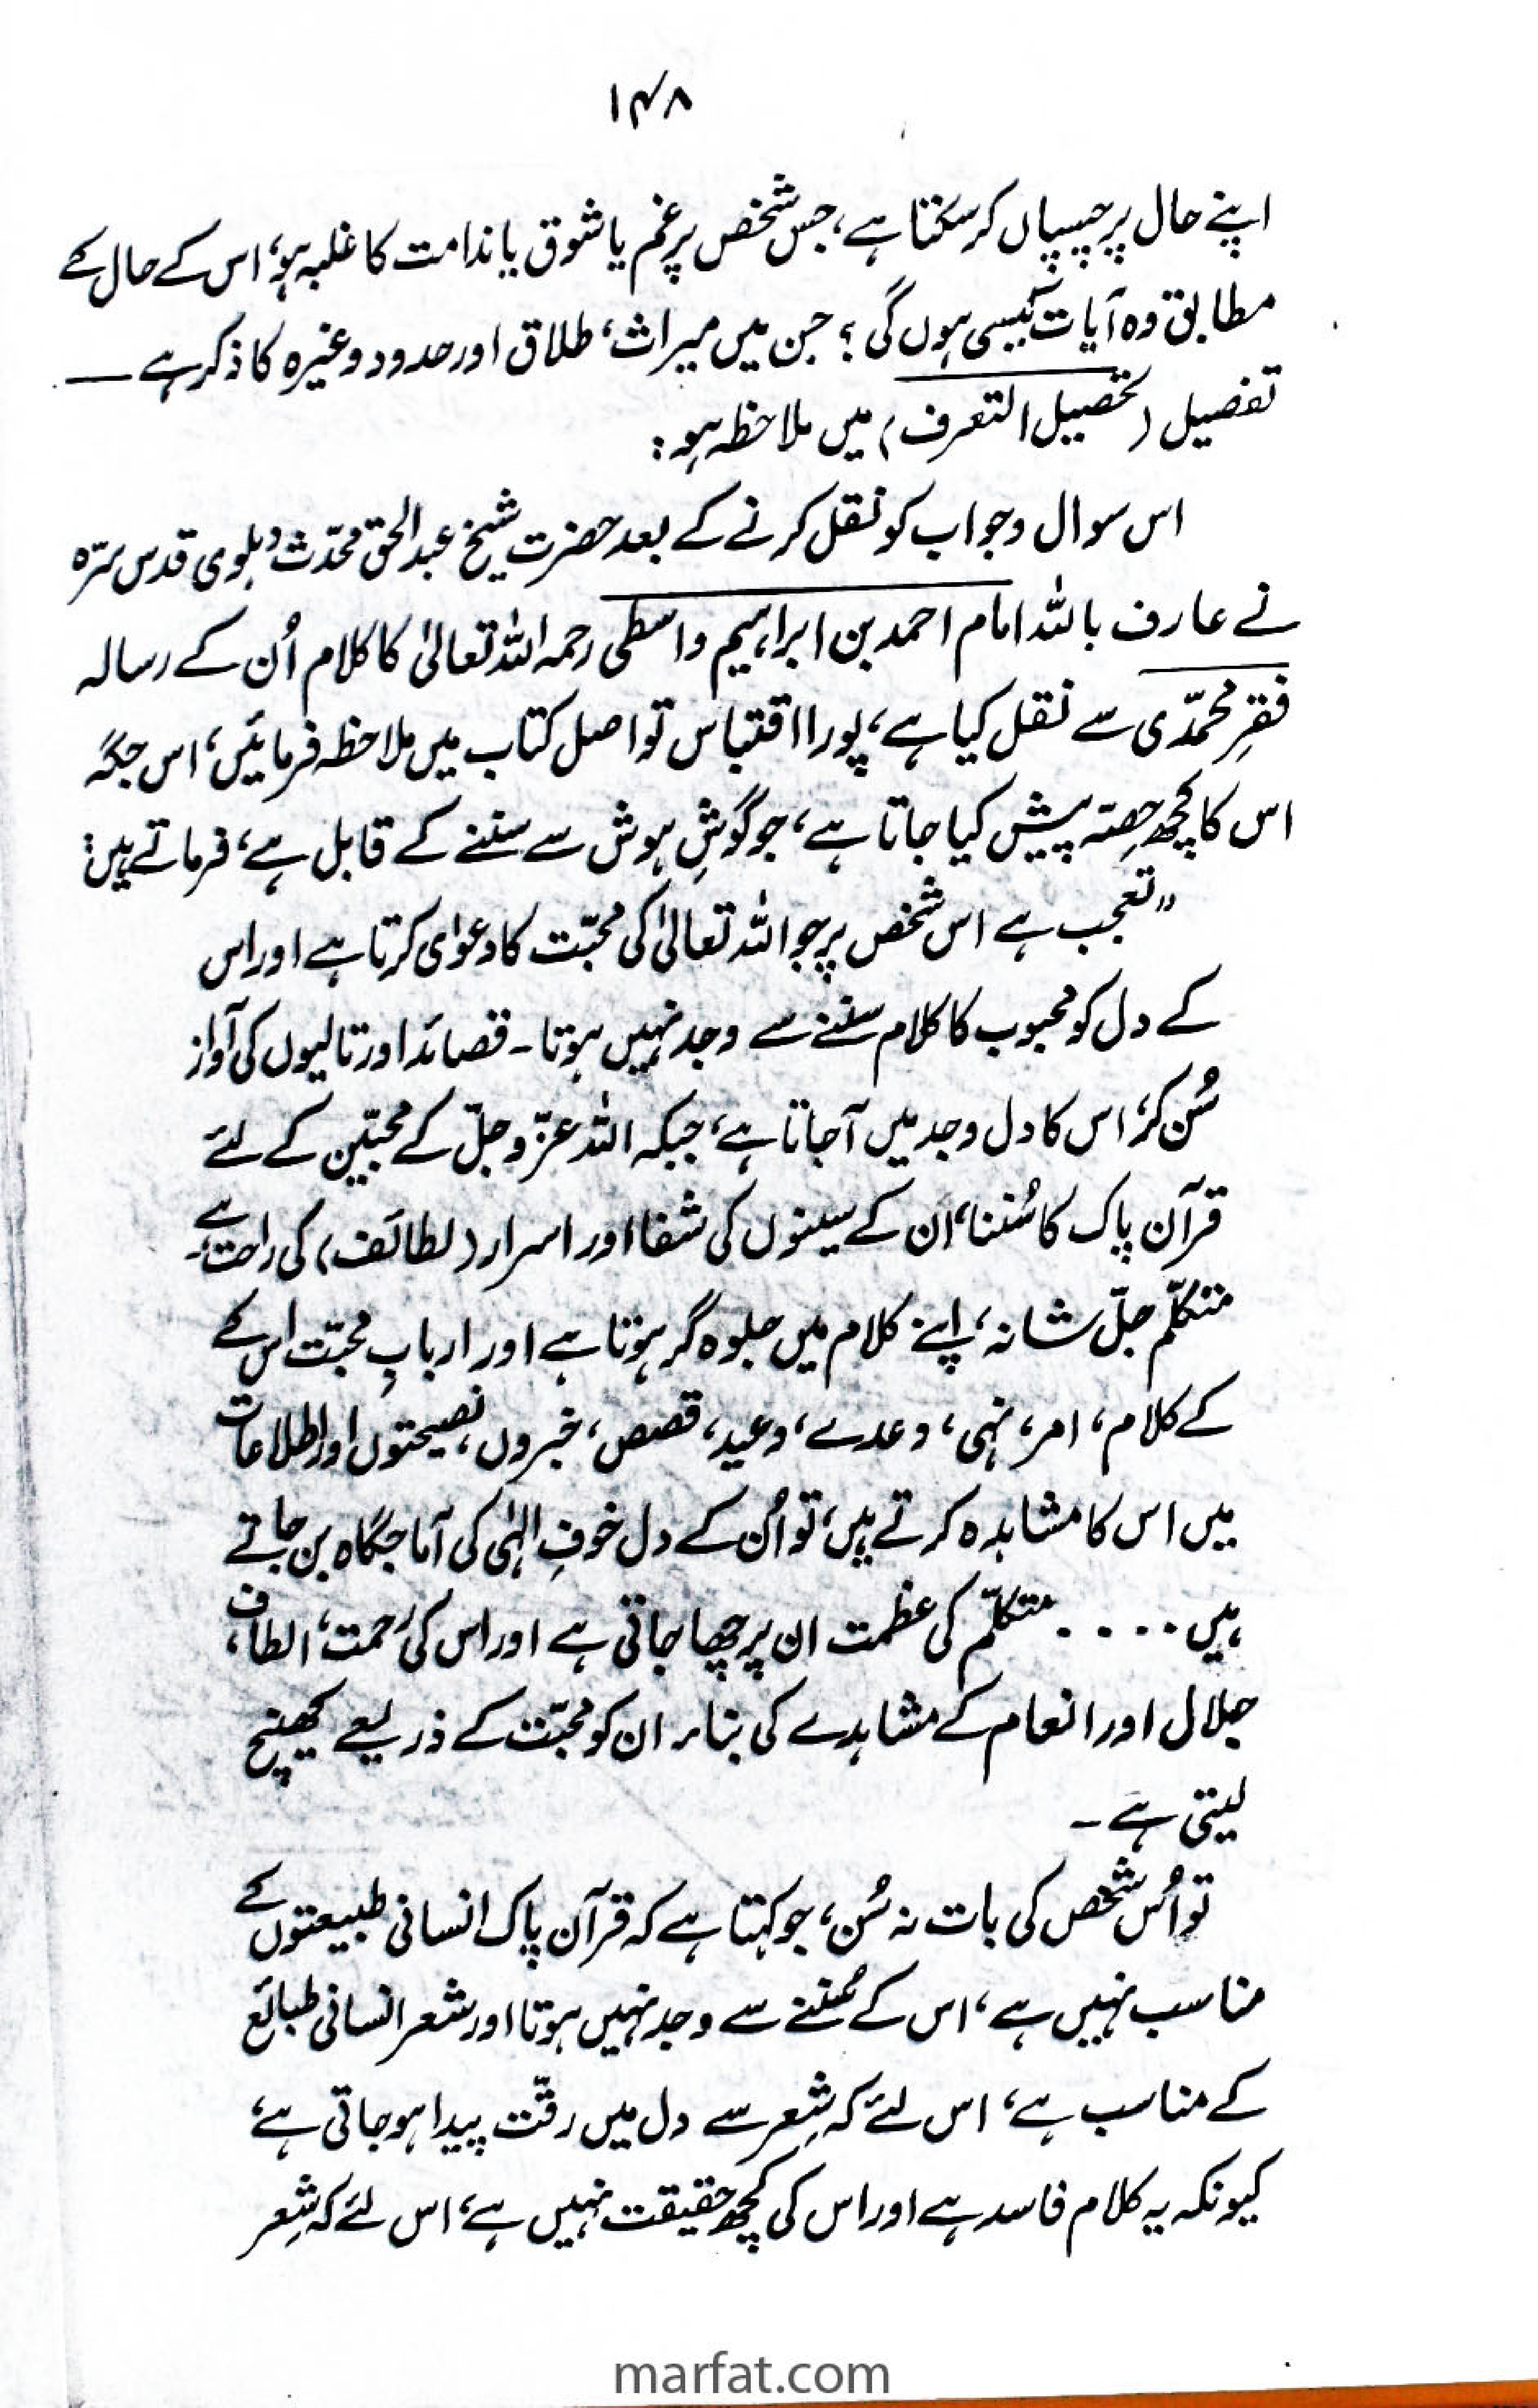 ۱۴۸
اپنے حال پر چسپاں کر سکتا ہے، جس شخص پر غم یا شوق یا ندامت کا غلبہ ہو، اس کے حال کے
مطابق وہ آیات کیسی ہوں گی؟ جن میں میراث، طلاق اور حدود وغیرہ کا ذکر ہے ——
تفصیل (تحصیل التعرف) میں ملاحظہ ہو:
اس سوال و جواب کو نقل کرنے کے بعد حضرت شیخ عبدالحق محدّث دہلوی قدس سرّہ
نے عارف باللہ امام احمد بن ابراہیم واسطی رحمہ اللہ تعالیٰ کا کلام اُن کے رسالہ
فقرِ محمّدی سے نقل کیا ہے، پورا اقتباس تو اصل کتاب میں ملاحظہ فرمائیں، اس جگہ
اس کا کچھ حصّہ پیش کیا جاتا ہے، جو گوشِ ہوش سے سننے کے قابل ہے، فرماتے ہیں:
"تعجب ہے اس شخص پر جو اللہ تعالیٰ کی محبّت کا دعوٰی کرتا ہے اور اس
کے دل کو محبوب کا کلام سننے سے وجد نہیں ہوتا۔ قصائد اور تالیوں کی آواز
سُن کر، اس کا دل وجد میں آجاتا ہے، جبکہ اللہ عزّ وجلّ کے محبّین کے لئے
قرآن پاک کا سُننا، ان کے سینوں کی شفا اور اسرار (لطائف) کی راحت ہے۔
متکلّم جلّ شانہ، اپنے کلام میں جلوہ گر ہوتا ہے اور اربابِ محبّت اس کے
کے کلام، امر، نہی، وعدے، وعید، قصص، خبروں، نصیحتوں اور اطلاعات
میں اس کا مشاہدہ کرتے ہیں، تو اُن کے دل خوفِ الہٰی کی آماجگاہ بن جاتے
ہیں ..... متکلّم کی عظمت ان پر چھا جاتی ہے اور اس کی رحمت، الطاف،
جلال اور انعام کے مشاہدے کی بناء پر ان کو محبّت کے ذریعے کھینچ
لیتی ہے ۔
تو اُس شخص کی بات نہ سُن، جو کہتا ہے کہ قرآن پاک انسانی طبیعتوں کے
مناسب نہیں ہے، اس کے سُننے سے وجد نہیں ہوتا اور شعر انسانی طبائع
کے مناسب ہے، اس لئے کہ شِعر سے دل میں رقّت پیدا ہو جاتی ہے،
کیونکہ یہ کلام فاسد ہے اور اس کی کچھ حقیقت نہیں ہے، اس لئے کہ شِعر
marfat.com